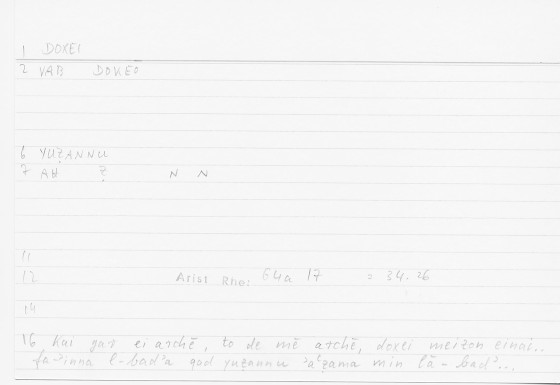 1 DOXEI
2 VAB DOKEO
6 YUẒANNU
7 AW Ẓ N N
11
12 Arist Rhe: 64a 17 = 34. 26
14
16 kai gar ei archē, to de mē archē, doxei meizon einai..
fa-ʾinna l-badʾa qad yuẓannu ʾaʿẓama min lā- badʾ...